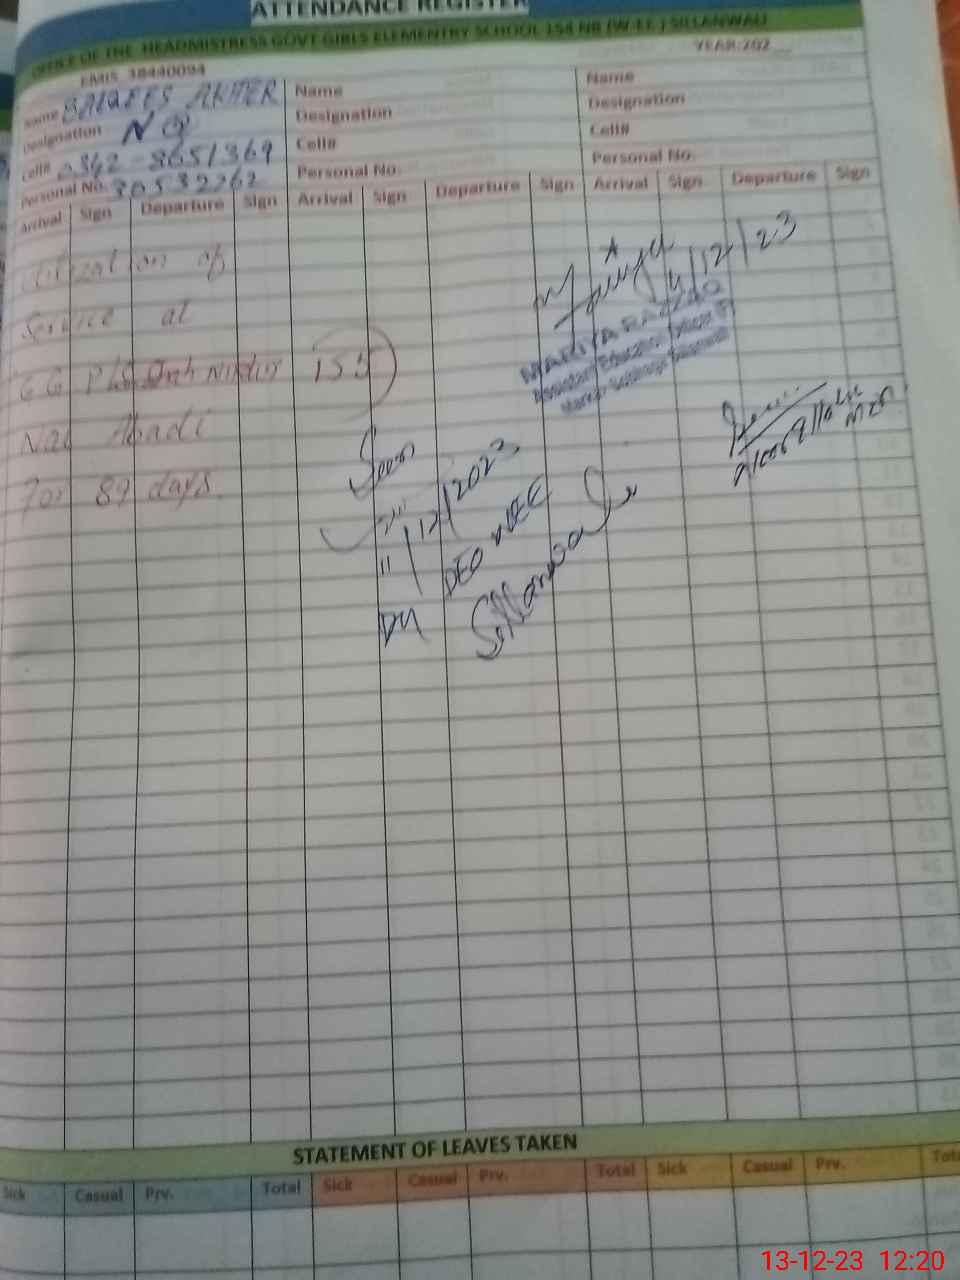 ATTENDANCE REGISTER
OFFICE OF THE HEADMISTRESS GOVT GIRLS ELEMENTRY SCHOOL 154 NB (W-EE ) SILLANWALI
EMIS 38440094
YEAR:202__
Name BALQEES AKHTER
Designation N Q
Cell# 0342-8651369
Personal No. 30532262
Name
Designation
Cell#
Personal No.
Name
Designation
Cell#
Personal No.
Arrival Sign Departure Sign Arrival Sign Departure Sign Arrival Sign Departure Sign
Utilization of
Service at
GG P/S
Abadi
For 89 days.
4/12/23
Seen
11/12/2023
DY DEO WEE
Sillanwali
STATEMENT OF LEAVES TAKEN
Sick Casual Prv. Total Sick Casual Prv. Total Sick Casual Prv. Tota
13-12-23 12:20